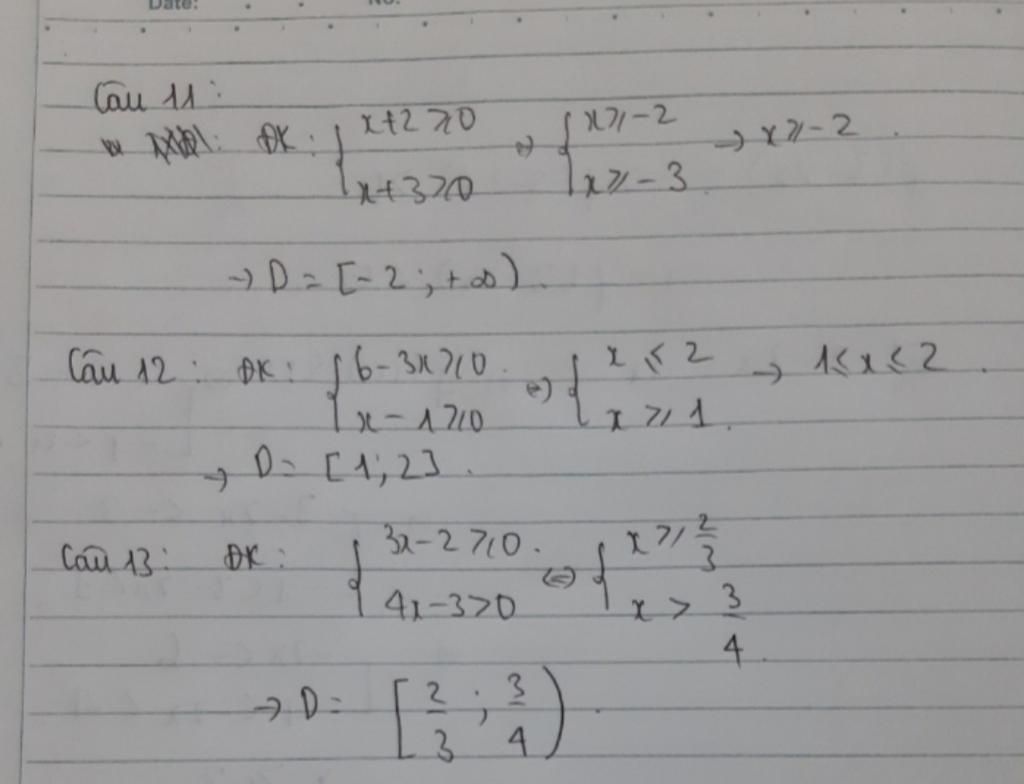 Date: No.
Câu 11:
ĐK: { x+2 ⩾ 0 ; x+3 ⩾ 0 ⇔ { x ⩾ -2 ; x ⩾ -3 → x ⩾ -2.
→ D = [-2; +∞).
Câu 12: ĐK: { 6-3x ⩾ 0 ; x-1 ⩾ 0 ⇔ { x ⩽ 2 ; x ⩾ 1. → 1 ⩽ x ⩽ 2.
→ D = [1; 2].
Câu 13: ĐK: { 3x-2 ⩾ 0. ; 4x-3 > 0 ⇔ { x ⩾ 2/3 ; x > 3/4.
→ D = [2/3 ; 3/4).